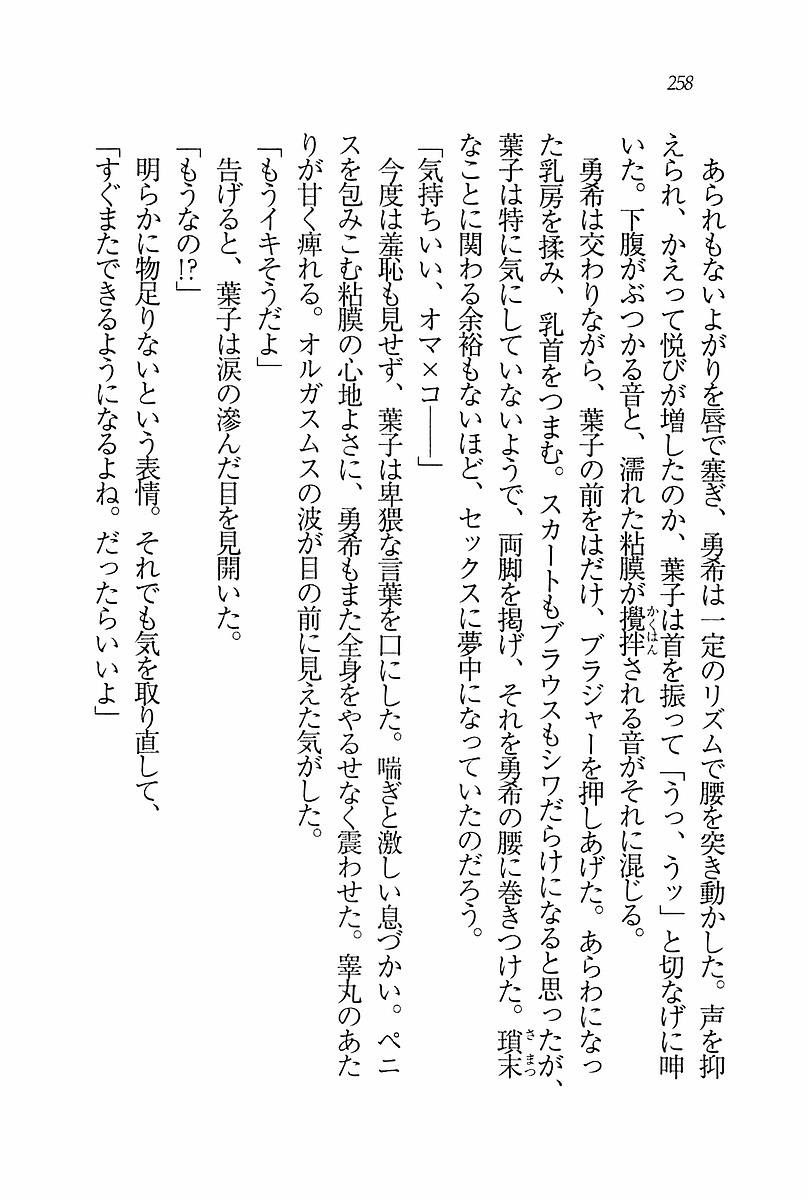 258
あられもないよがりを唇で塞ぎ、勇希は一定のリズムで腰を突き動かした。声を抑
えられ、かえって悦びが増したのか、葉子は首を振って「うっ、うッ」と切なげに呻
いた。下腹がぶつかる音と、濡れた粘膜が攪拌かくはんされる音がそれに混じる。
勇希は交わりながら、葉子の前をはだけ、ブラジャーを押しあげた。あらわになっ
た乳房を揉み、乳首をつまむ。スカートもブラウスもシワだらけになると思ったが、
葉子は特に気にしていないようで、両脚を掲げ、それを勇希の腰に巻きつけた。瑣末さまつ
なことに関わる余裕もないほど、セックスに夢中になっていたのだろう。
「気持ちいい、オマ×コ――」
今度は羞恥も見せず、葉子は卑猥な言葉を口にした。喘ぎと激しい息づかい。ペニ
スを包みこむ粘膜の心地よさに、勇希もまた全身をやるせなく震わせた。睾丸のあた
りが甘く痺れる。オルガスムスの波が目の前に見えた気がした。
「もうイキそうだよ」
告げると、葉子は涙の滲んだ目を見開いた。
「もうなの!?」
明らかに物足りないという表情。それでも気を取り直して、
「すぐまたできるようになるよね。だったらいいよ」